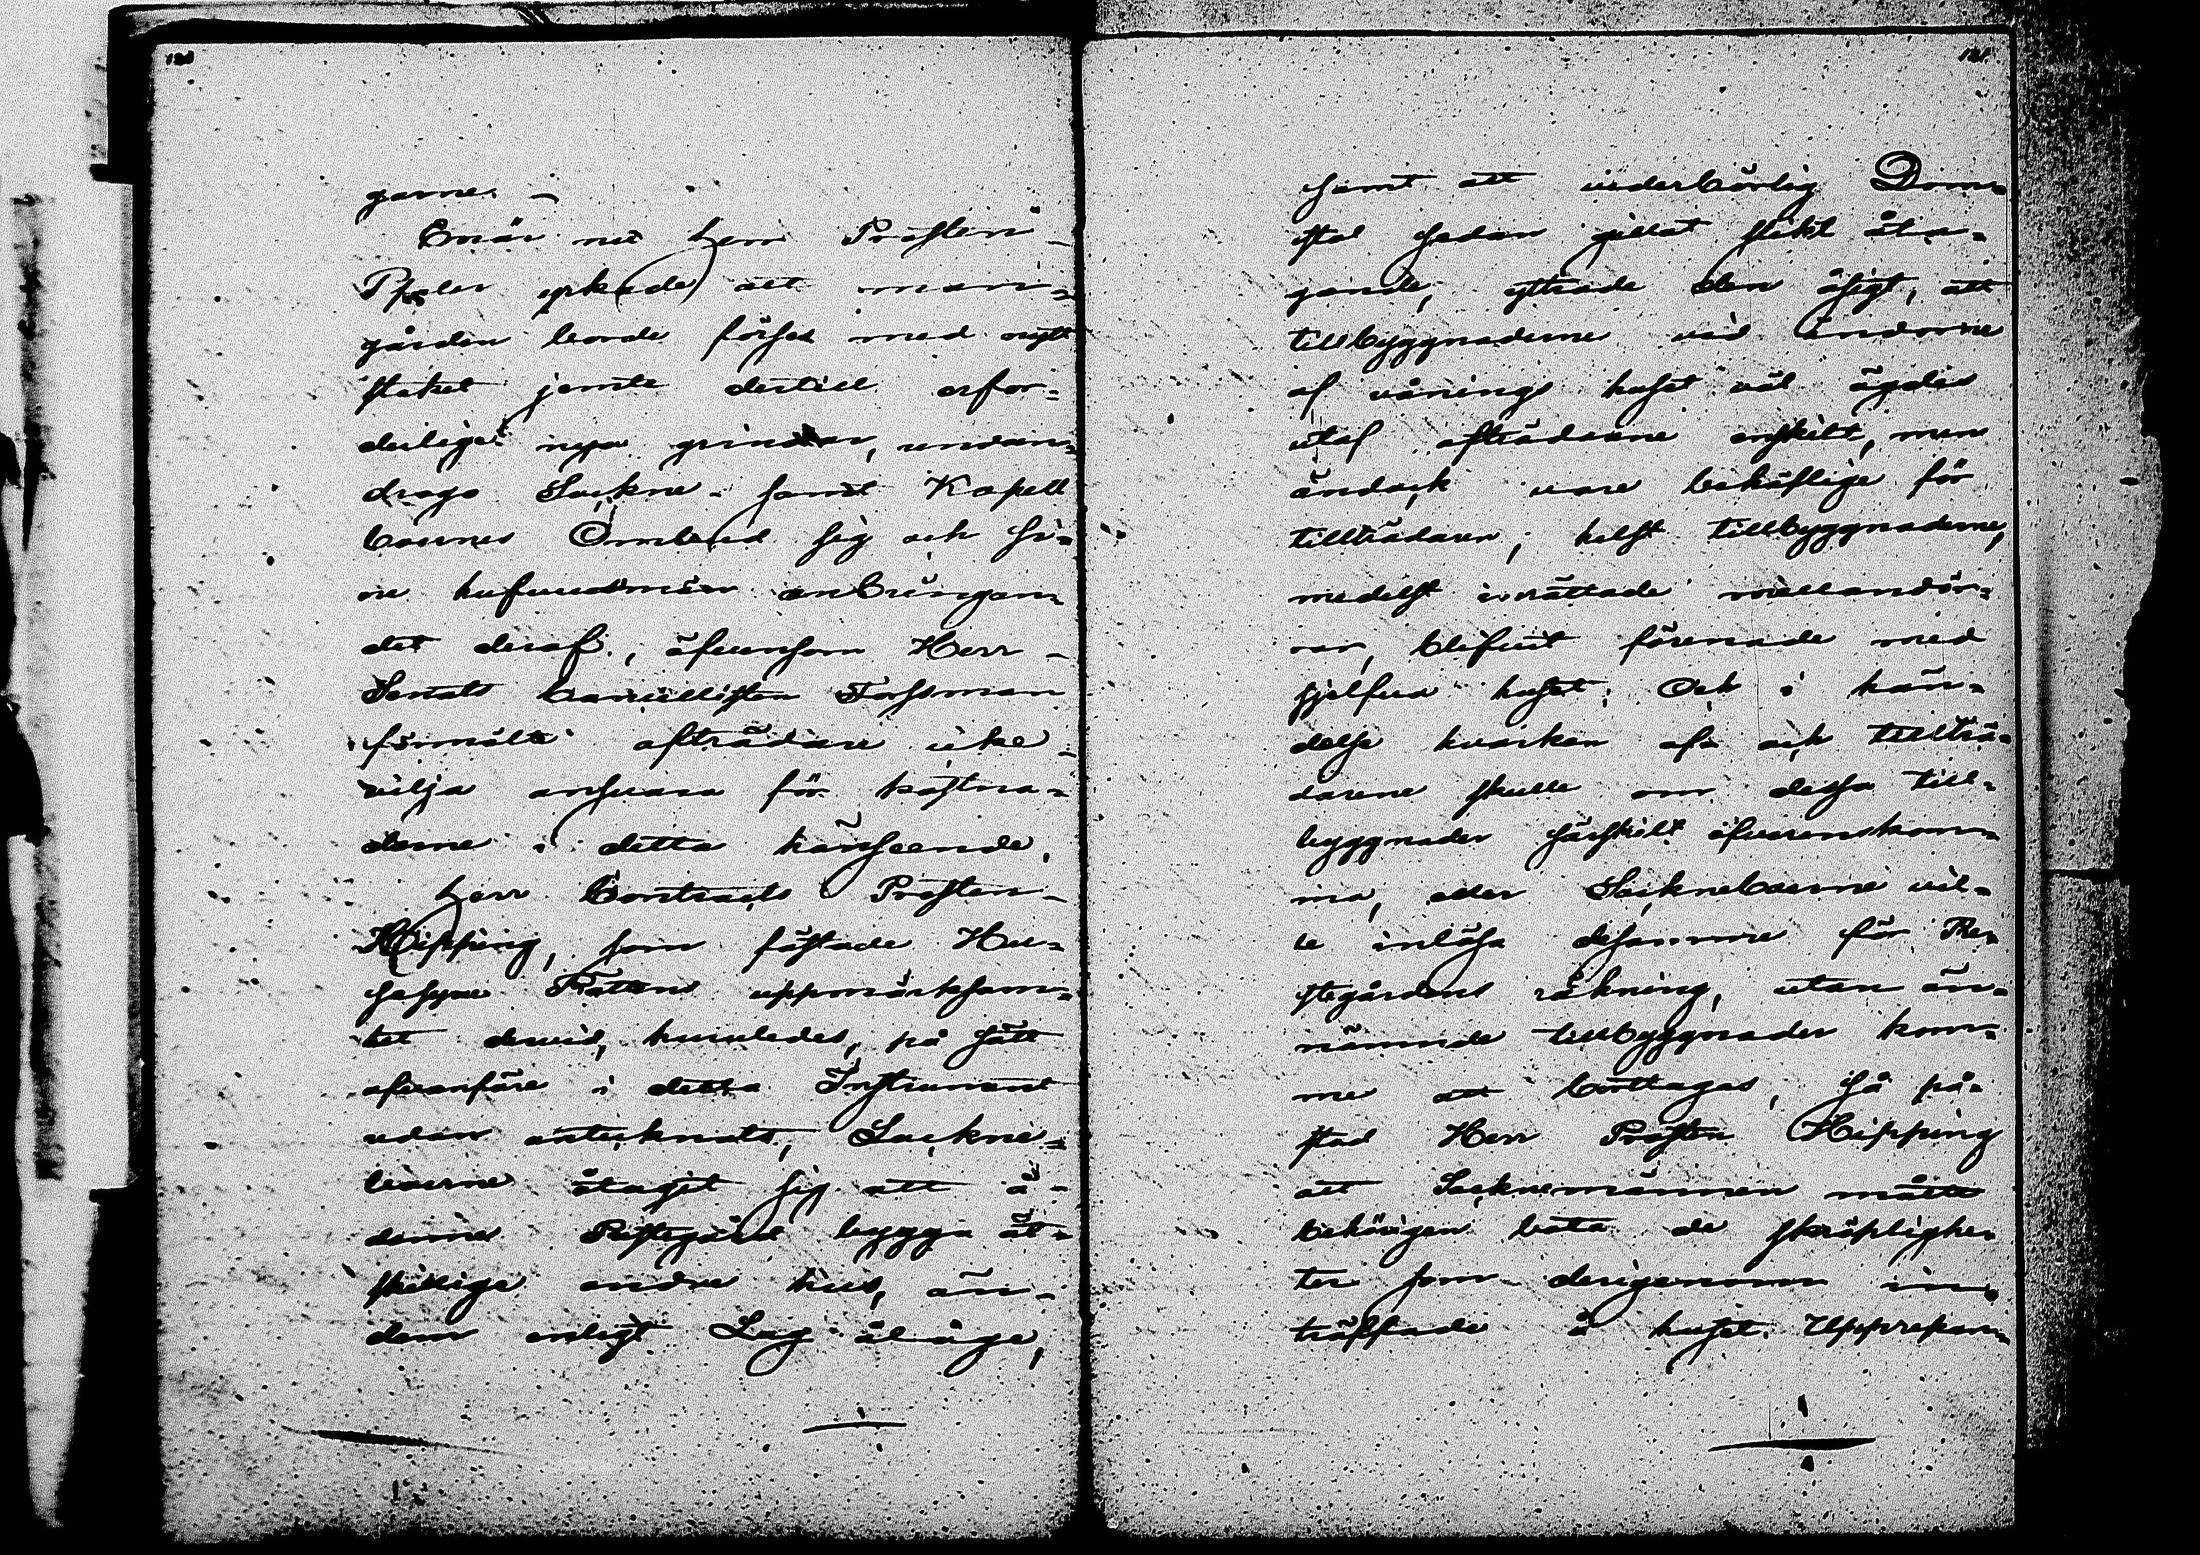 garne. –
Enär nu Herr Prosten
Pfaler yrkade att man-
gården borde förses med nytt
staket jemte dertill erfor-
derlige nya grindar, undan-
drogo Sockne- samt Kapell
boernes Ombud sig och si-
ne hufvudmän anbringan-
det deraf, äfvensom Herr
Senats Cancellisten Forsman
förmälte afträdare icke
vilja ansvara för kostna-
derne i detta hänseende.
Herr Contracts Prosten
Hipping, som fästade Hu-
sesyne Rättens uppmärksam-
het dervid, huruledes, på sätt
ofvanföre i detta Instrument
redan antecknats, Sockne-
boerne åtagit sig att å
denna Prestegård bygga åt-
skillige andre hus, än-
dem enligt Lag åläge,
samt att vederbörlig Dom-
stol sedan gillat slikt åta-
gande, yttrade den åsigt, att
tillbyggnaderne vid ändorne
af vånings huset väl ägdes
utaf afträdarne enskilt, men
ändock vore behöflige för
tillträdaren, helst tillbyggnaderne,
medelst inrättade mellandör-
rar, blifvit förenade med
sjelfva huset; Och i hän-
delse hvarken af- och tillträ-
darene skulle om dessa till-
byggnader särskilt öfverenskom-
ma, eller Sockneboerne vil-
le inlösa desamme för Pre-
stegårdens räkning, utan än-
nämnde tillbyggnader kom-
me att borttagas, så på-
stod Herr Prosten Hipping
att Socknemännen måtte
behörigen bota de skröplighe-
ter som derigenom in-
träffade å huset. Upprepan-